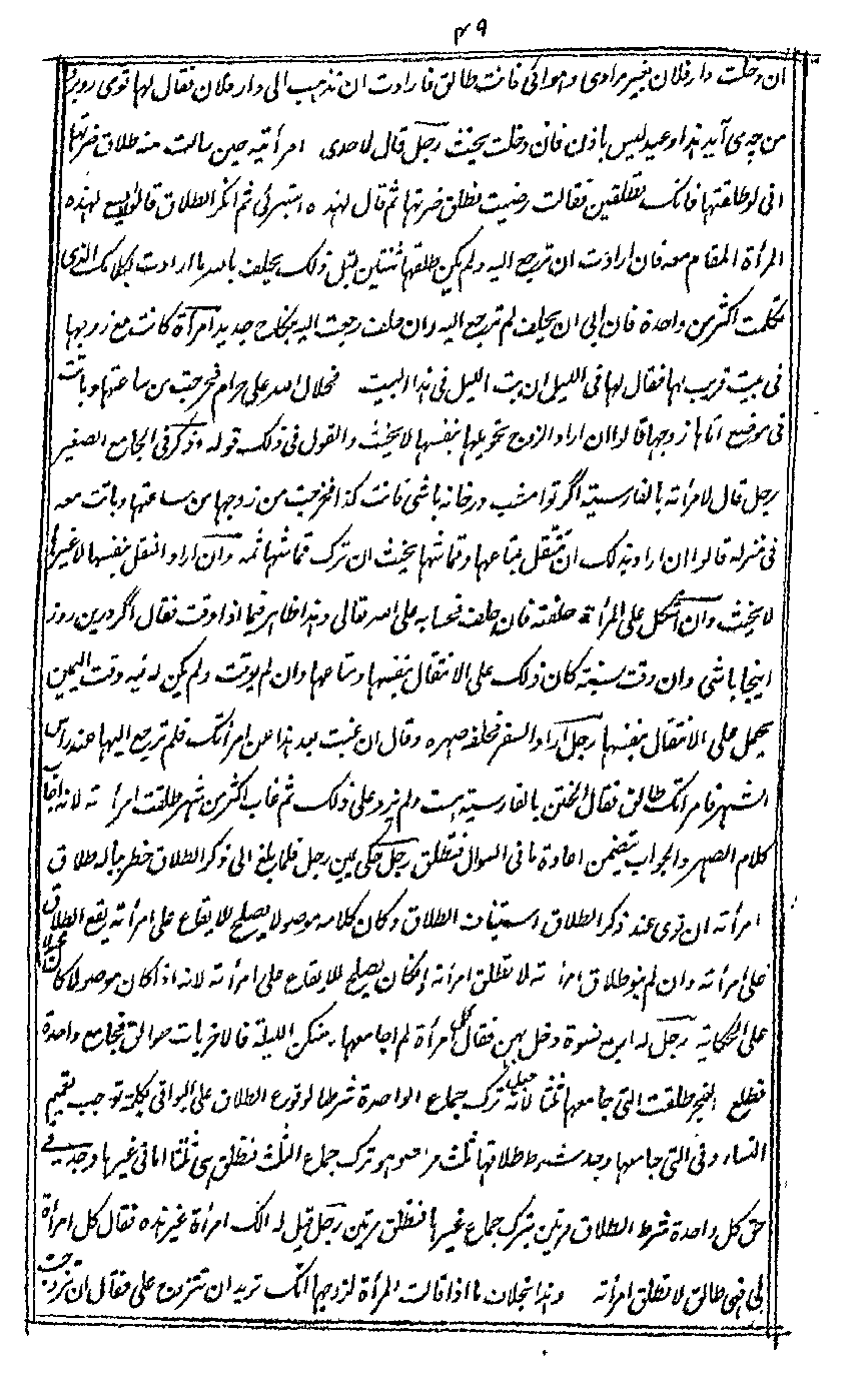 ٤٩
ان دخلت دار فلان بغير مرادى وهوائى فانت طالق فارادت ان تذهب الى دار فلان فقال لها توى روبرو
من چه مى آيد هذا وعيد ليس باذن فان دخلت يحنث رجل قال لاحدى امرأتيه حين سالت منه طلاق ضرتها
انى لو طلقتها فانك تطلقين فقالت رضيت فطلق ضرتها ثم قال لهذه استبرئى ثم انكر الطلاق قالوا يسع لهذه
المرأة المقام معه فان ارادت ان ترجع اليه ولم يكن طلقها ثنتين قبل ذلك يحلف بالله ما اردت بكلامك الذى
تكلمت اكثر من واحدة فان ابى ان يحلف لم ترجع اليه وان حلف رجعت اليه بنكاح جديد امرأة كانت مع زوجها
فى بيت قريب لها فقال لها فى الليل ان بت الليل فى هذا البيت فحلال الله على حرام فخرجت من ساعتها وباتت
فى موضع اتاها زوجها قالوا ان اراد الزوج تحويلها بنفسها لا يحنث والقول فى ذلك قوله وذكر فى الجامع الصغير
رجل قال لامرأته بالفارسية اگر تو امشب درخانه باشى فانت كذا فخرجت من زوجها من ساعتها وباتت معه
فى منزله قالوا ان اراد بذلك ان تنتقل بمتاعها وقماشها يحنث ان ترك قماشها ثمه وان اراد النقل بنفسها لا غير
لا يحنث وان اشكل على المرأة حلفته فان حلف فحسابه على الله تعالى وهذا ظاهر فيما اذا وقت فقال اگر درين روز
اينجا باشى وان وقت سنة كان ذلك على الانتقال بنفسها ومتاعها وان لم يوقت ولم يكن له نيه وقت اليمن
يحمل على الانتقال بنفسها رجل اراد السفر فحلفه صهره وقال ان غبت بعد هذا عن امرأتك فلم ترجع اليها عند راس
الشهر فامرأتك طالق فقال الختن بالفارسية هست ولم يزد على ذلك ثم غاب اكثر من شهر طلقت امرأته لانه اجاب
كلام الصهر والجواب يتضمن اعادة ما فى السوال فتطلق رجل حكى يمين رجل فلما بلغ الى ذكر الطلاق خطر بباله طلاق
امرأته ان نوى عند ذكر الطلاق استيناف الطلاق وكان كلامه موصولا يصلح للايقاع على امرأته يقع الطلاق
على امرأته وان لم ينو طلاق امرأته لا تطلق امرأته وان كان يصلح للايقاع على امرأته لانه اذا كان موصولا كان محمولا
على الحكاية رجل له اربع نسوة دخل بهن فقال كل امرأة لم اجامعها منكن الليلة فالاخريات طوالق فجامع واحدة
فطلع الفجر طلقت التى جامعها ثلثا لانه جعل ترك جماع الواحدة شرطا لوقوع الطلاق على البواقى بكلمة توجب تعميم
النساء وفى التى جامعها وجد شرط طلاقها ثلث مرات وهو ترك جماع الثلث فتطلق هى ثلثا اما فى غيرها وجد فى
حق كل واحدة شرط الطلاق مرتين بترك جماع غيرها فتطلق مرتين رجل قيل له الك امرأة غير هذه فقال كل امرأة
لى فهى طالق لا تطلق امرأته وهذا بخلاف ما اذا قالت المرأة لزوجها انك تريد ان تتزوج على فقال ان تزوجت